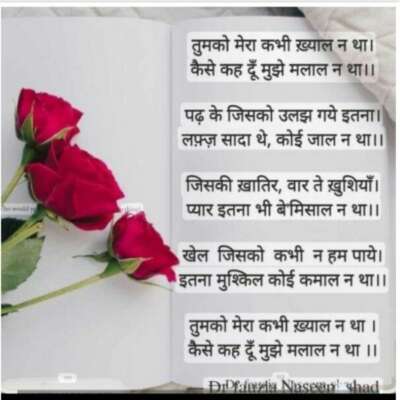 तुमको मेरा कभी ख़्याल न था।
कैसे कह दूँ मुझे मलाल न था।।
पढ़ के जिसको उलझ गये इतना।
लफ़्ज़ सादा थे, कोई जाल न था।।
जिसकी ख़ातिर, वार ते ख़ुशियाँ।
प्यार इतना भी बे'मिसाल न था।।
खेल जिसको कभी न हम पाये।
इतना मुश्किल कोई कमाल न था।।
तुमको मेरा कभी ख़्याल न था ।
कैसे कह दूँ मुझे मलाल न था ।।
Dr fauzia Naseem shad